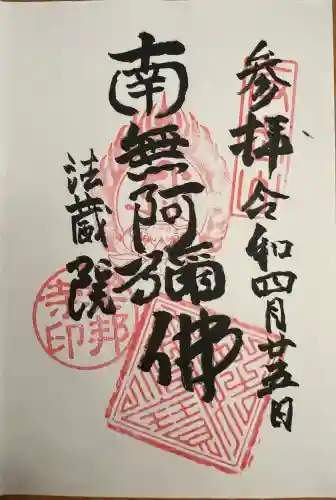 参拝 令和四月廿五日
南無阿彌佛
法蔵院